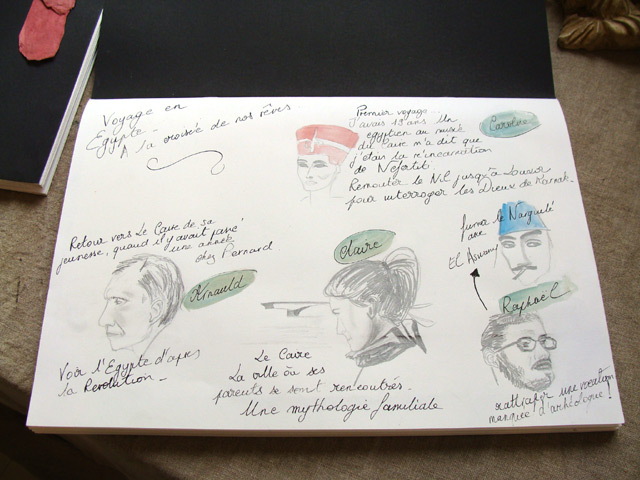 Voyage en
Egypte -
A la croisée de nos rêves.
Premier voyage...
J'avais 13 ans. Un
egyptien au musée
du Caire m'a dit que
j'étais la réincarnation
de Nefertiti
Remonter le Nil jusqu'à Louxor
pour interroger les Dieux de Karnak.
Caroline
Retour vers Le Caire de sa
jeunesse, quand il y avait passé
une année
chez Pernard
Arnauld
Voir l'Egypte d'après
la Revolution -
Claire
Le Caire
La ville où ses
parents se sont rencontrés.
Une mythologie familiale
fumer le Narguilé
avec
El Aswany
Raphael
rattraper une vocation
manquée d'archéologue!